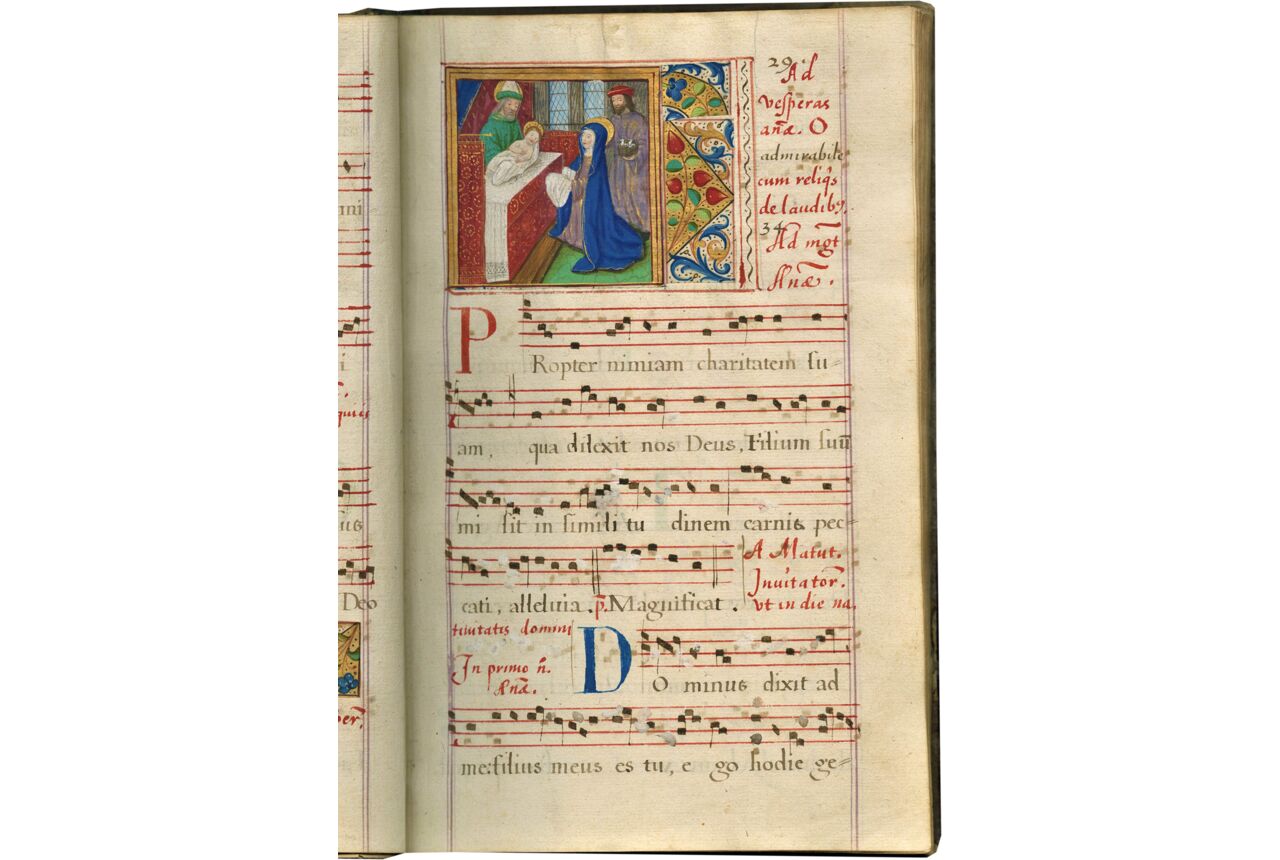 ini
i
quiis
ius
Deo
per,
29.
Ad
vesperas
anæ. O
admirabile
cum reliqs
de laudibꝫ,
34
Ad mgt
Anæ.
PRopter nimiam charitatem su=
am, qua dilexit nos Deus, Filium suũ
misit in simili tu dinem carnis pec=
cati, alleluia. p. Magnificat.
A Matut.
Invitator.
vt in die na
tiuitatis domini
In primo ñ.
Anæ.
DO minus dixit ad
me: filius meus es tu, e go hodie ge=